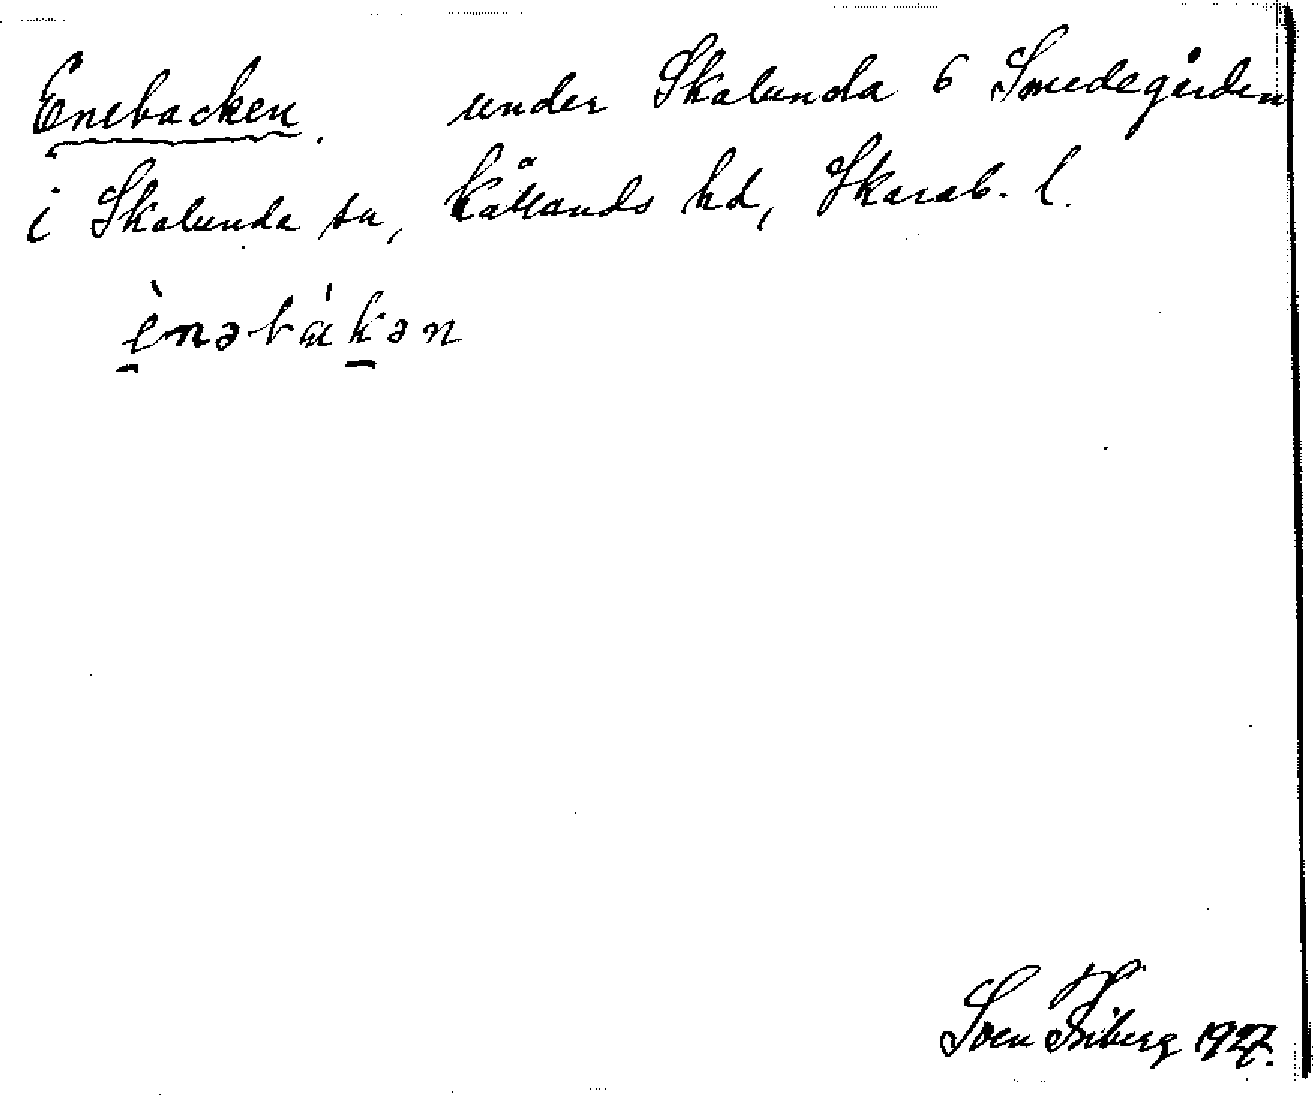 Enebacken. under Skalunda 6 Smedegården
i Skalunda sn, Kållands hd, Skarab. l.
ènəbákən
Sven Friberg 1927.